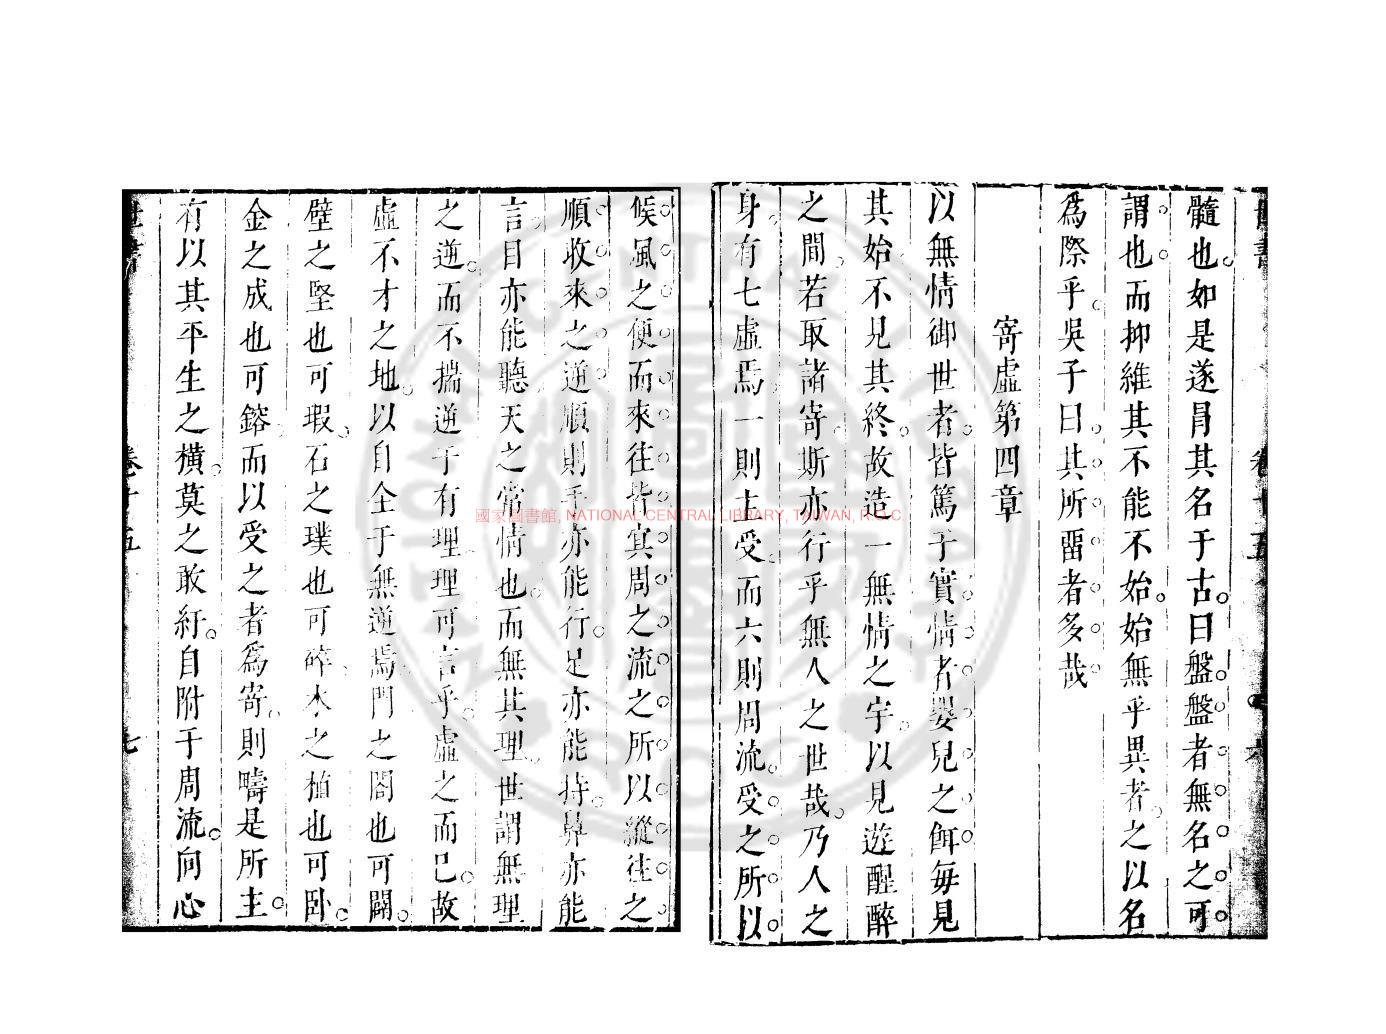 髓也如是遂冐其名于古曰盤盤者無名之可
謂也而抑維其不能不始始無乎異者之以名
爲際乎吳子曰其所畱者多哉
寄虛第四章
以無情御世者皆篤于實情者嬰兒之餌每見
其始不見其終故造一無情之宇以見遊醒醉
之間若取諸寄斯亦行乎無人之世哉乃人之
身有七虛焉一則主受而六則周流受之所以
候風之便而來往皆寘周之流之所以縱往之
順收來之逆順則手亦能行足亦能持鼻亦能
言目亦能聽天之常情也而無其理世謂無理
之逆而不揣逆于有理理可言乎虛之而已故
虛不才之地以自全于無逆焉門之閤也可闢
壁之堅也可瑕石之璞也可碎木之植也可卧
金之成也可鎔而以受之者爲寄則疇是所主
有以其平生之橫莫之敢紆自附于周流向心
卷十五
七
國家圖書館, NATIONAL CENTRAL LIBRARY, TAIWAN, R.O.C.